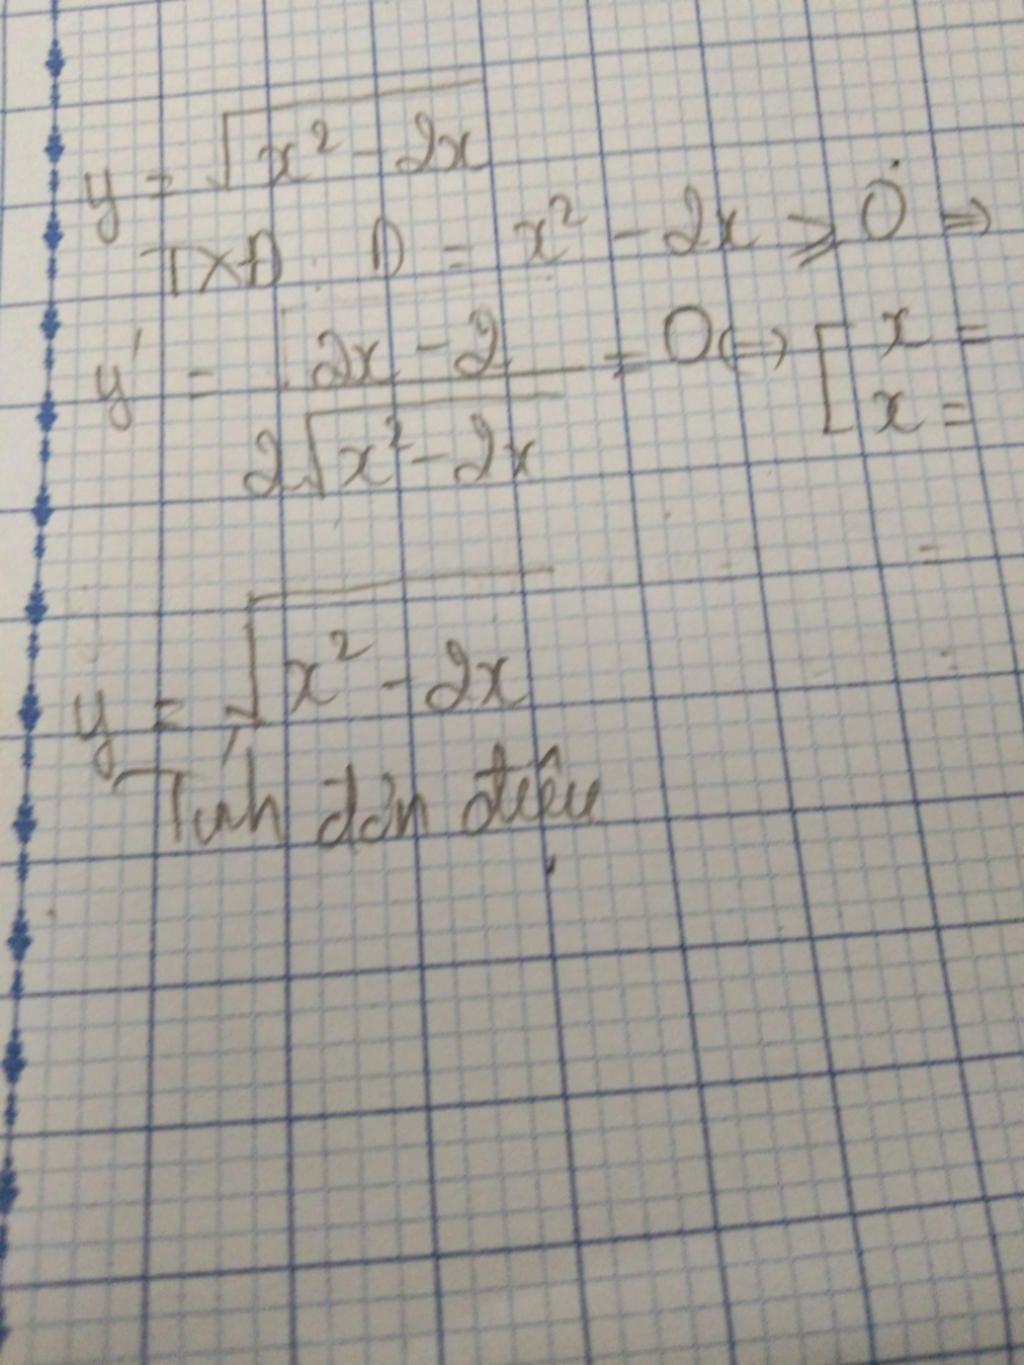 y = √(x² - 2x)
TXĐ D = x² - 2x ≥ 0 ⇒
y' = (2x - 2)/(2√(x² - 2x)) = 0 ⇔ [ x =
x =
y = √(x² - 2x)
Tính đơn điệu